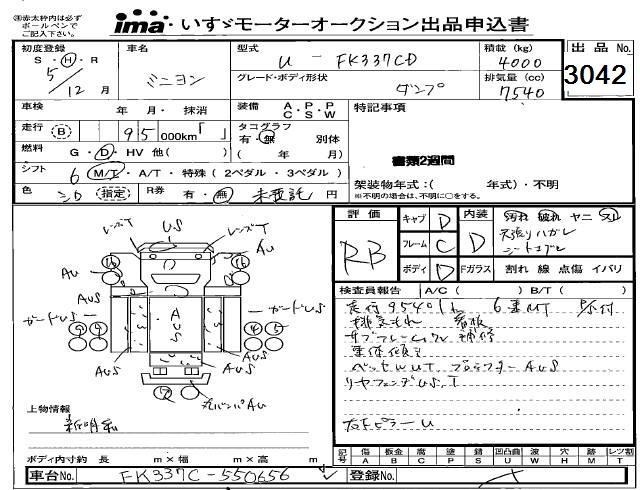 ※赤太枠内は必ず
ボールペンで
ご記入下さい。
ima・いすゞモーターオークション出品申込書
初度登録 S・H・R 5/12月
車名 ミニヨン
型式 U - FK337CD
グレード・ボディ形状 ダンプ
積載(kg) 4000
排気量(cc) 7540
出品No.
3042
車検 年 月・抹消
装備 A・P・P C・S・W
特記事項
走行 B 95 000km「 」
タコグラフ 有・無 別体 ( 年 月)
燃料 G・D・HV 他( )
書類2週間
シフト 6 M/T・A/T・特殊(2ペダル・3ペダル)
架装物年式:( 年式)・不明
※不明の場合は、不明に○をする。
色 シロ(指定) R券 有・無 未預託 円
評価 RB
キャブ D
フレーム C
ボディ D
内装 D
汚れ 破れ ヤニ スレ
天張りハガレ
Fガラス 割れ 線 点傷 イバリ
検査員報告 A/C( ) B/T( )
走行95401k 6速MT
排気もれ 看板
補修
リヤフェンダUS.T
左Fピラーu
レンズT US レンズT
AU AU
AUS AUS
ガードUS ガードUS
AUS
AUS AUS
上物情報
新明和
ボディ内寸約 長 m×幅 m×高 m
記号 傷A 板金B 腐C 塗P 錆S 凹凸曲U 波W 穴H 跡M レンズ割T
車台No. FK337C-550656
登録No.